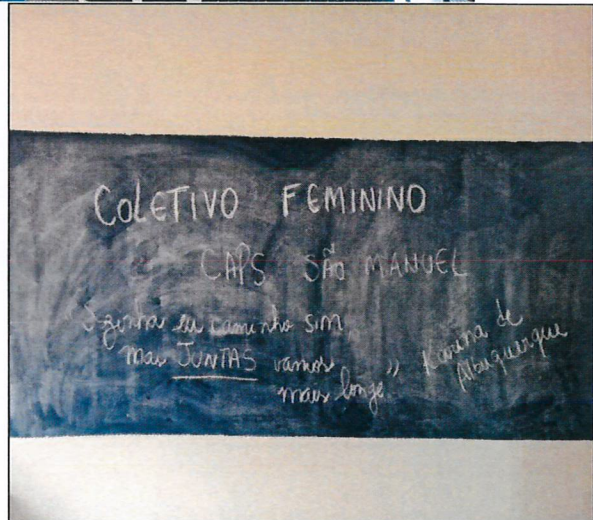 COLETIVO FEMININO
CAPS SÃO MANUEL
Szinha eu caminho sim
mas JUNTAS vamos
mais longe"
Karina de
Albuquerque